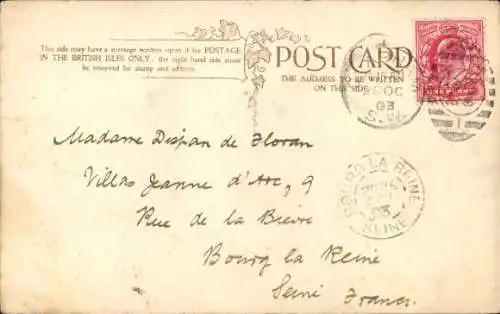 This side may have a message written upon it for POSTAGE
IN THE BRITISH ISLES ONLY: the right hand side must
be reserved for stamp and address.
POST CARD
THE ADDRESS TO BE WRITTEN
ON THIS SIDE
OC
03
S.W.
ONE PENNY
Madame Dispan de Floran
Villas Jeanne d'Arc, 9
Rue de la Bievre
Bourg la Reine
Seine France
BOURG LA REINE
03
SEINE